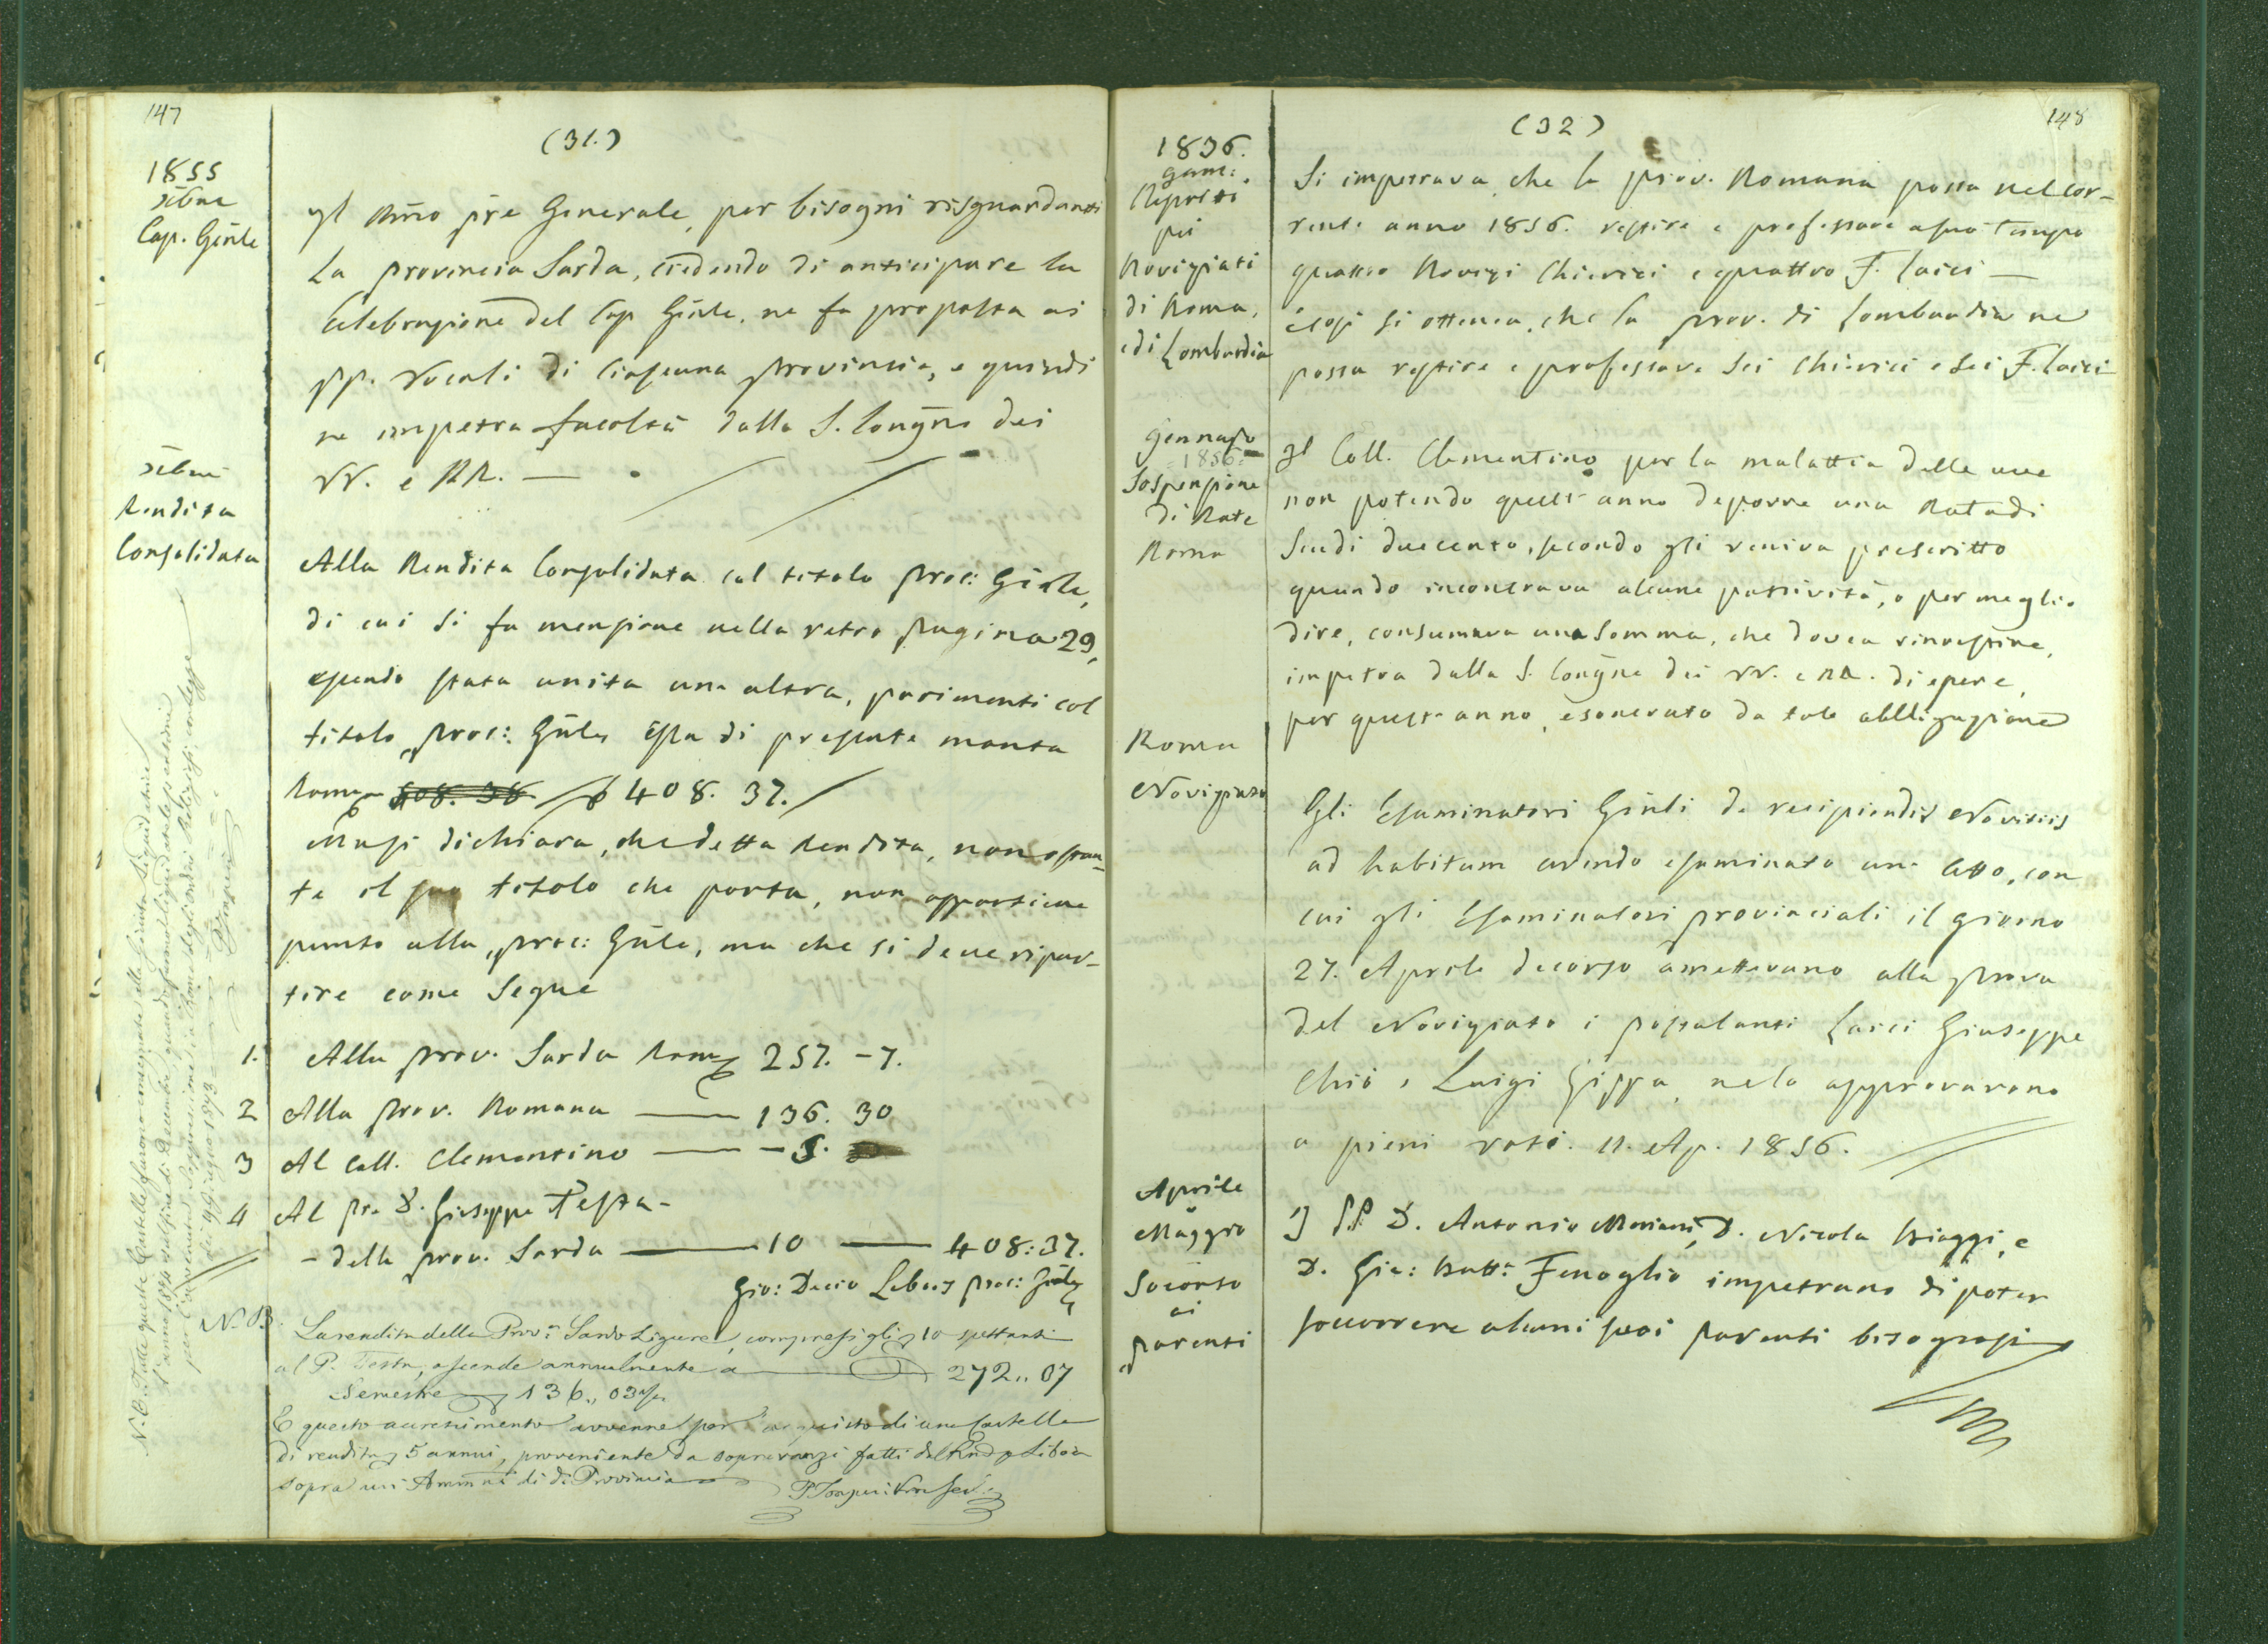 147
(31.)
1855
Xbre
Cap. Gñle
Il Rm̃o pr̃e Generale, per bisogni risguardanti
la provincia Sarda, credendo di anticipare la
Celebrazione del Cap. Gñle. ne fa proposta ai
PP. Vocali di Ciascuna provincia, e quindi
ne impetra facoltà dalla S. Congñe dei
VV. e RR. —
Xbre
Rendita
Consolidata
Alla Rendita Consolidata col titolo proc: Gñle,
di cui si fa menzione nella retro pagina 29,
essendo stata unita una altra, parimenti col
titolo proc: Gñle, essa di presente monta
408. 37.
Ma si dichiara, che detta Rendita, non ostan-
te il suo titolo che porta, non appartiene
punto alla proc: Gñle, ma che si deve ripar-
tire come Segue
1. Alla prov. Sarda Rom 257. -7.
2 Alla prov. Romana — 136. 30
3 Al Coll. Clementino — -5.
4 Al pre D. Giuseppe Testa -
- della prov. Sarda — 10 — 408:37.
Gio: Decio Libois proc: Gñle
N.B. La rendita della Prov.a Sardo Ligure, compresi gli 10 spettanti
al P. Testa, ascende annualmente a — 272,, 07
Semestre 136,, 03
E questo accrescimento avvenne per l'acquisto di una Cartella
di rendita 5 annui, proveniente da sopravanzi fatti dal Libois
sopra
N.B. Tutte queste Cartelle furono consegnate alla Giunta Liquidatrice
148
(32)
1856.
Genn:
Rescritti
pei
Noviziati
di Roma,
e di Lombardia
Si impetrava che la prov. Romana possa nel cor-
rente anno 1856. vestire e professare a suo tempo
quattro Novizi Chierici e quattro F. laici —
e così si ottenea, che la prov. di Lombardia ne
possa vestire e professare Sei Chierici e Sei F. laici
Gennajo
1856
Sospensione
di Rate
Roma
Il Coll. Clementino per la malattia delle uve
non potendo quest'anno deporre una Rata di
Scudi duecento, secondo gli veniva prescritto
quando incontrava alcune passività, o per meglio
dire, consumava una Somma, che dovea rinvestire,
impetra dalla S. Congñe dei VV. e RR. di essere,
per quest'anno, esonerato da tale obbligazione
Roma
Noviziato
Gli Esaminatori Gñli de recipiendis Novitiis
ad habitum avendo esaminato un Atto, con
cui gli Esaminatori provinciali il giorno
27. Aprile decorso amettevano alla prova
del Noviziato i postulanti Laici Giuseppe
Chiò e Luigi Gippa, ne lo approvarono
a pieni voti. 11. Ap. 1856.
Aprile
Maggio
Socorso
ai
parenti
I PP. D. Antonio Moriani, D. Nicola Biaggi, e
D. Gio: Batt: Fenoglio impetrano di poter
soccorrere alcuni suoi parenti bisognosi